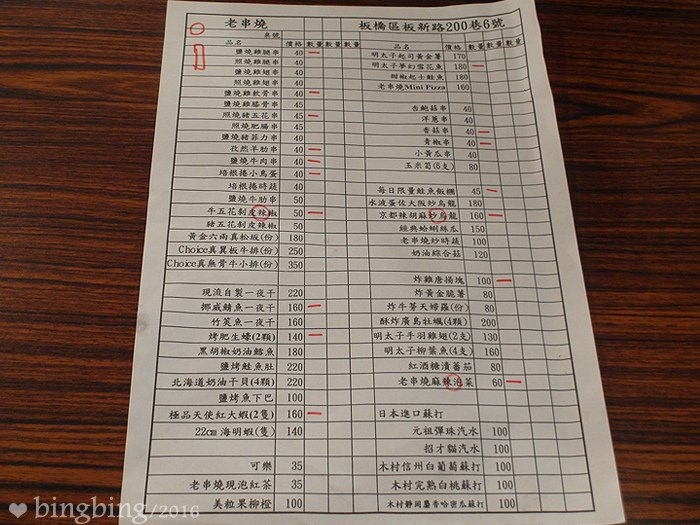 老串燒 板橋區板新路200巷6號
桌號
品名 價格 數量 數量 數量
鹽燒雞腿串 40 一
照燒雞腿串 40
鹽燒雞翅串 40
照燒雞翅串 40
鹽燒雞軟骨串 40 一
鹽燒雞膝骨串 45
照燒豬五花串 45 一
照燒肥腸串 45
鹽燒豬菲力串 40
孜然羊肋串 40 一
鹽燒牛肉串 40 一
培根捲小鳥蛋 40 一
培根捲時蔬 40
鹽燒牛肋串 50
牛五花剝皮辣椒 50 一
豬五花剝皮辣椒 50
黃金六兩真松坂(份) 180
Choice真翼板牛排(份) 250
Choice真無骨牛小排(份) 350
現流自製一夜干 220
挪威鯖魚一夜干 160 一
竹筴魚一夜干 160
烤肥生蠔(2顆) 140 一
黑胡椒奶油鱈魚 180
鹽烤鮭魚肚 220
北海道奶油干貝(4顆) 220
鹽烤魚下巴 100
極品天使紅大蝦(2隻) 160 一
22cm 海明蝦(隻) 140
可樂 35
老串燒現泡紅茶 35
美粒果柳橙 100
品名 價格 數量 數量 數量
明太子起司黃金薯 170
明太子夢幻雪花魚 180 一
甜椒起士鮭魚 180
老串燒Mini Pizza 160
杏鮑菇串 40
洋蔥串 40
香菇串 40 一
青椒串 40 一
小黃瓜串 40
玉米筍(6支) 80
每日限量鮭魚飯糰 45 一
水波蛋佐大阪炒烏龍 180
京都辣胡麻炒烏龍 160 一
經典蛤蜊絲瓜 150
老串燒炒時蔬 100
奶油綜合菇 120
炸雞唐揚塊 100 一
炸黃金脆薯 80
炸牛蒡天婦羅(份) 80
酥炸廣島牡蠣(4顆) 200
明太子手羽雞翅(2支) 130
明太子柳葉魚(4支) 160
紅酒糖漬蕃茄 80
老串燒麻辣泡菜 60 一
日本進口蘇打
元祖彈珠汽水 100
招才貓汽水 100
木村信州白葡萄蘇打 100
木村完熟白桃蘇打 100
木村靜岡麝香哈密瓜蘇打 100
❤ bingbing/2016